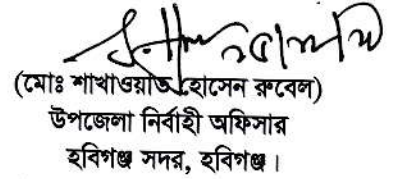 (মোঃ শাখাওয়াত হোসেন রুবেল)
উপজেলা নির্বাহী অফিসার
হবিগঞ্জ সদর, হবিগঞ্জ।